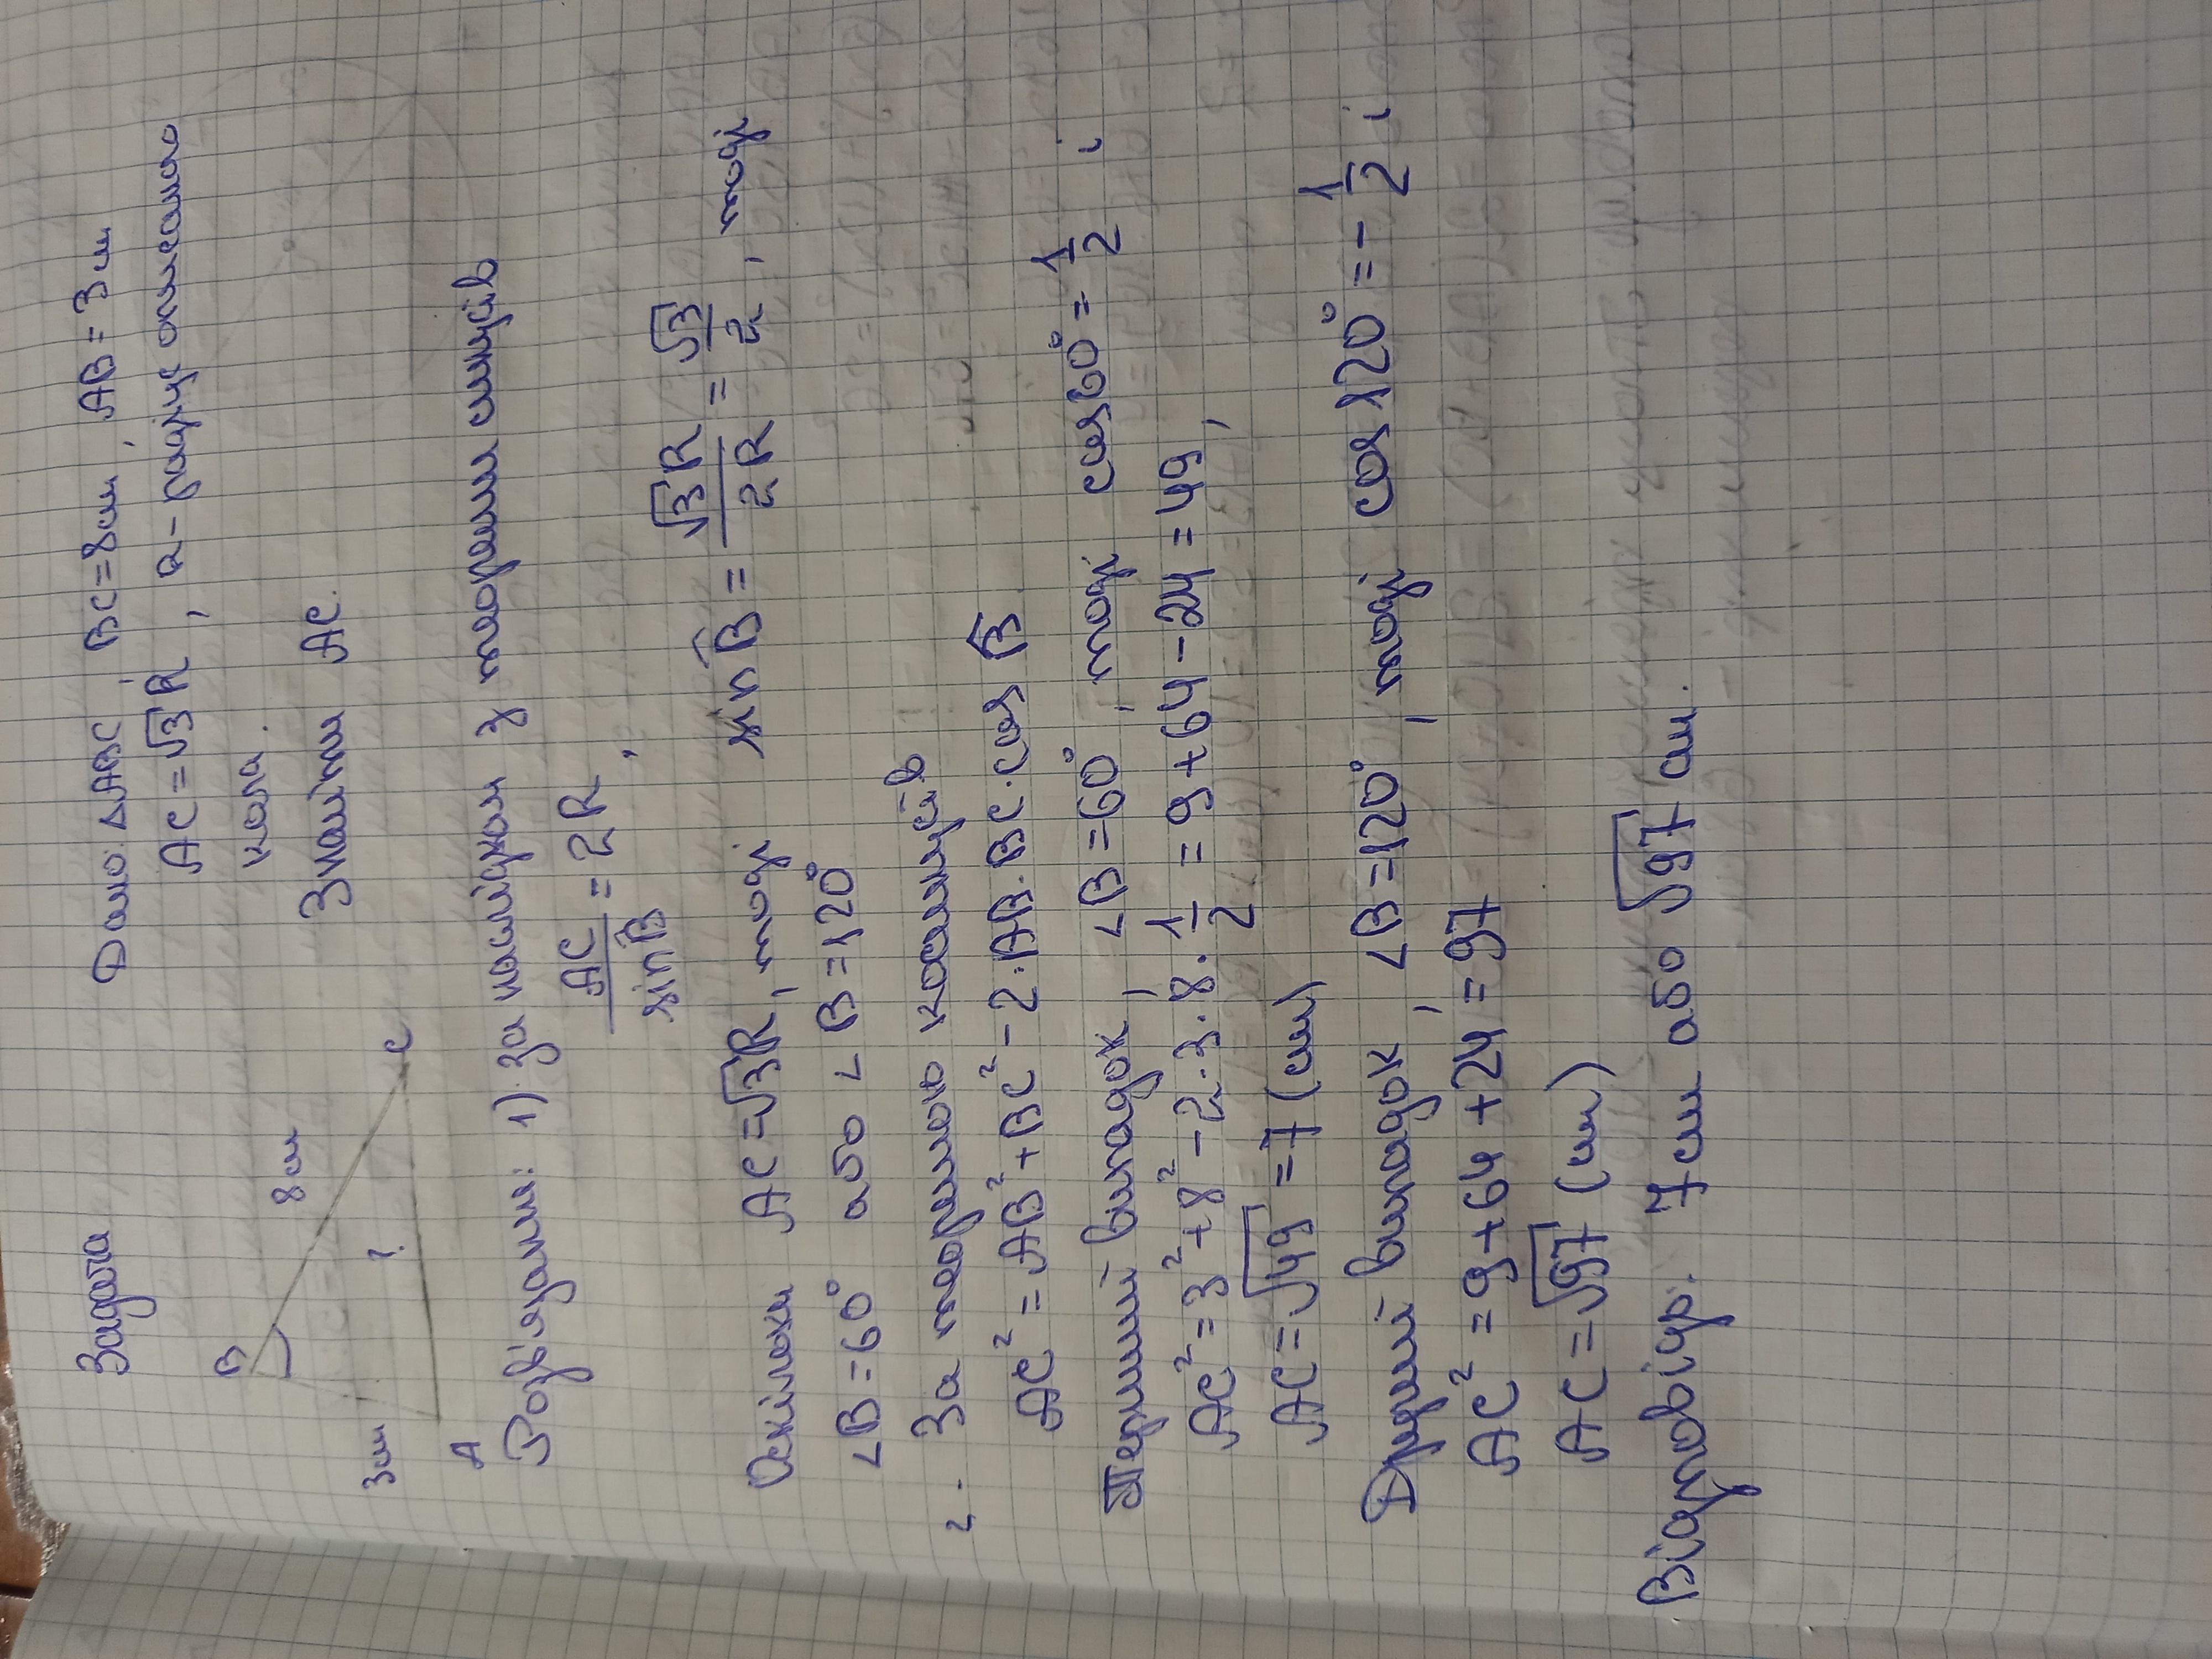 Задача
Дано: ΔABC, BC=8см, AB=3см
AC=√3R, R-радіус описаного
кола.
Знайти AC.
B
8см
3см
?
A
C
Розв'язання: 1) За наслідком з теореми синусів
AC/sin B = 2R,
Оскільки AC=√3R, тоді sin B = √3R/2R = √3/2, тоді
∠B=60° або ∠B=120°
2. За теоремою косинусів
AC²=AB²+BC²-2·AB·BC·cos B
Перший випадок, ∠B=60°, тоді cos60°=1/2 і
AC²=3²+8²-2·3·8·1/2=9+64-24=49,
AC=√49=7(см)
Другий випадок, ∠B=120°, тоді cos120°=-1/2 і
AC²=9+64+24=97
AC=√97 (см)
Відповідь: 7см або √97 см.